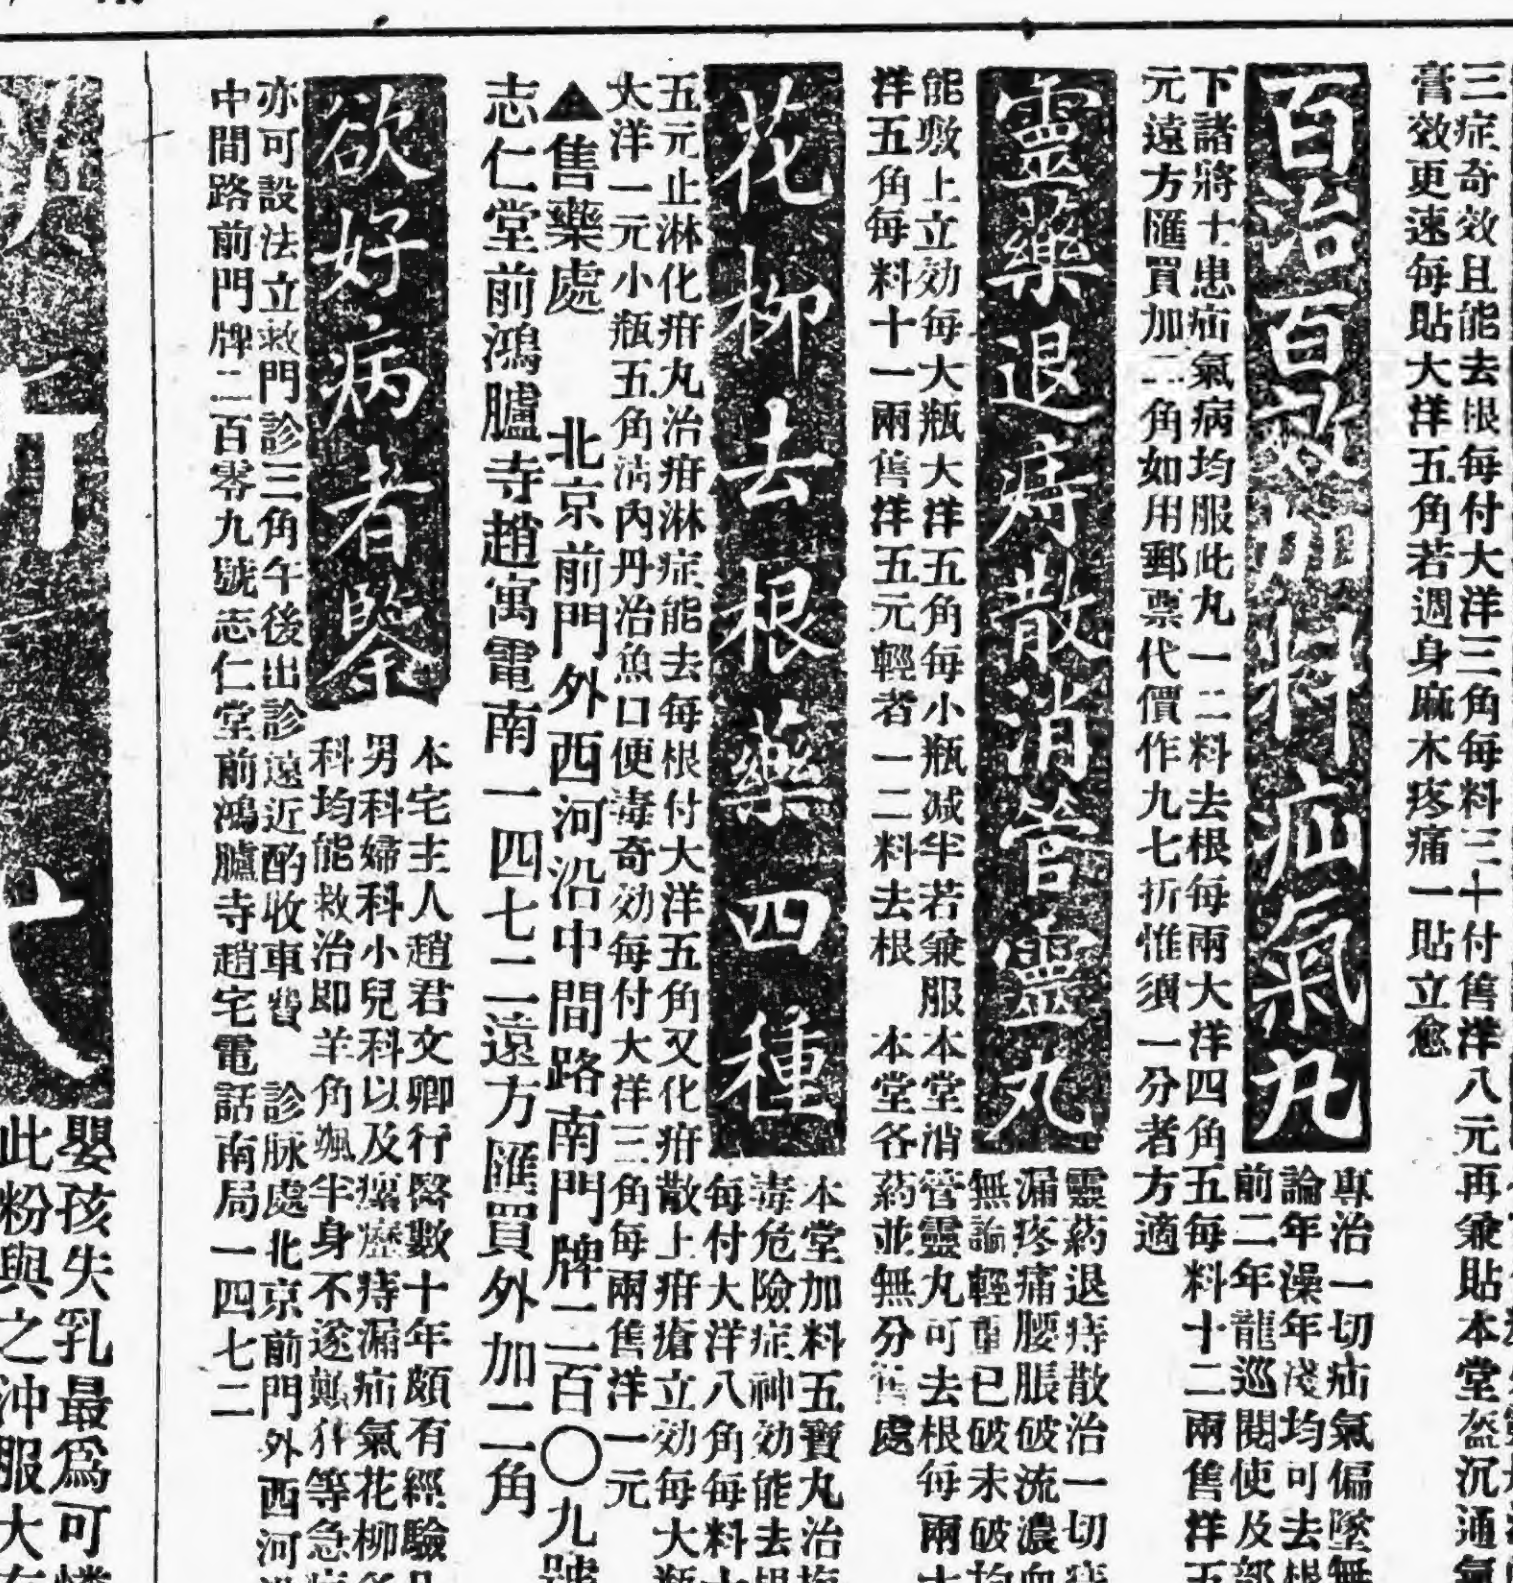 三症奇效且能去根每付大洋三角每料三十付售洋八元再兼貼本堂盔沉通氣
膏效更速每貼大洋五角若週身麻木疼痛一貼立愈
百治百效加料疝氣丸
專治一切疝氣偏墜無
論年深年淺均可去根
前二年龍巡閱使及部
下諸將士患疝氣病均服此丸一二料去根每兩大洋四角五每料十二兩售洋五
元遠方匯買加二角如用郵票代價作九七折惟須一分者方適
靈藥退痔散消管靈丸
靈葯退痔散治一切痔
漏疼痛腰脹破流濃血
無論輕重已破未破均
能敷上立効每大瓶大洋五角每小瓶减半若兼服本堂消管靈丸可去根每兩大
洋五角每料十一兩售洋五元輕者一二料去根 本堂各葯並無分售處
花柳去根藥四種
本堂加料五寶丸治梅
毒危險症神効能去根
每付大洋八角每料十
五元止淋化疳丸治疳淋症能去每根付大洋五角又化疳散上疳瘡立効每大瓶
大洋一元小瓶五角清內丹治魚口便毒奇効每付大洋三角每兩售洋一元
▲售藥處 北京前門外西河沿中間路南門牌二百〇九號
志仁堂前鴻臚寺趙寓電南一四七二遠方匯買外加二角
欲好病者鑒
本宅主人趙君文卿行醫數十年頗有經驗凡
男科婦科小兒科以及瘰癧痔漏疝氣花柳
科均能救治即羊角瘋半身不遂癲狂等急症
亦可設法立救門診三角午後出診遠近酌收車費 診脉處北京前門外西河
中間路前門牌二百零九號志仁堂前鴻臚寺趙宅電話南局一四七二
嬰孩失乳最爲可憐
此粉與之沖服大有